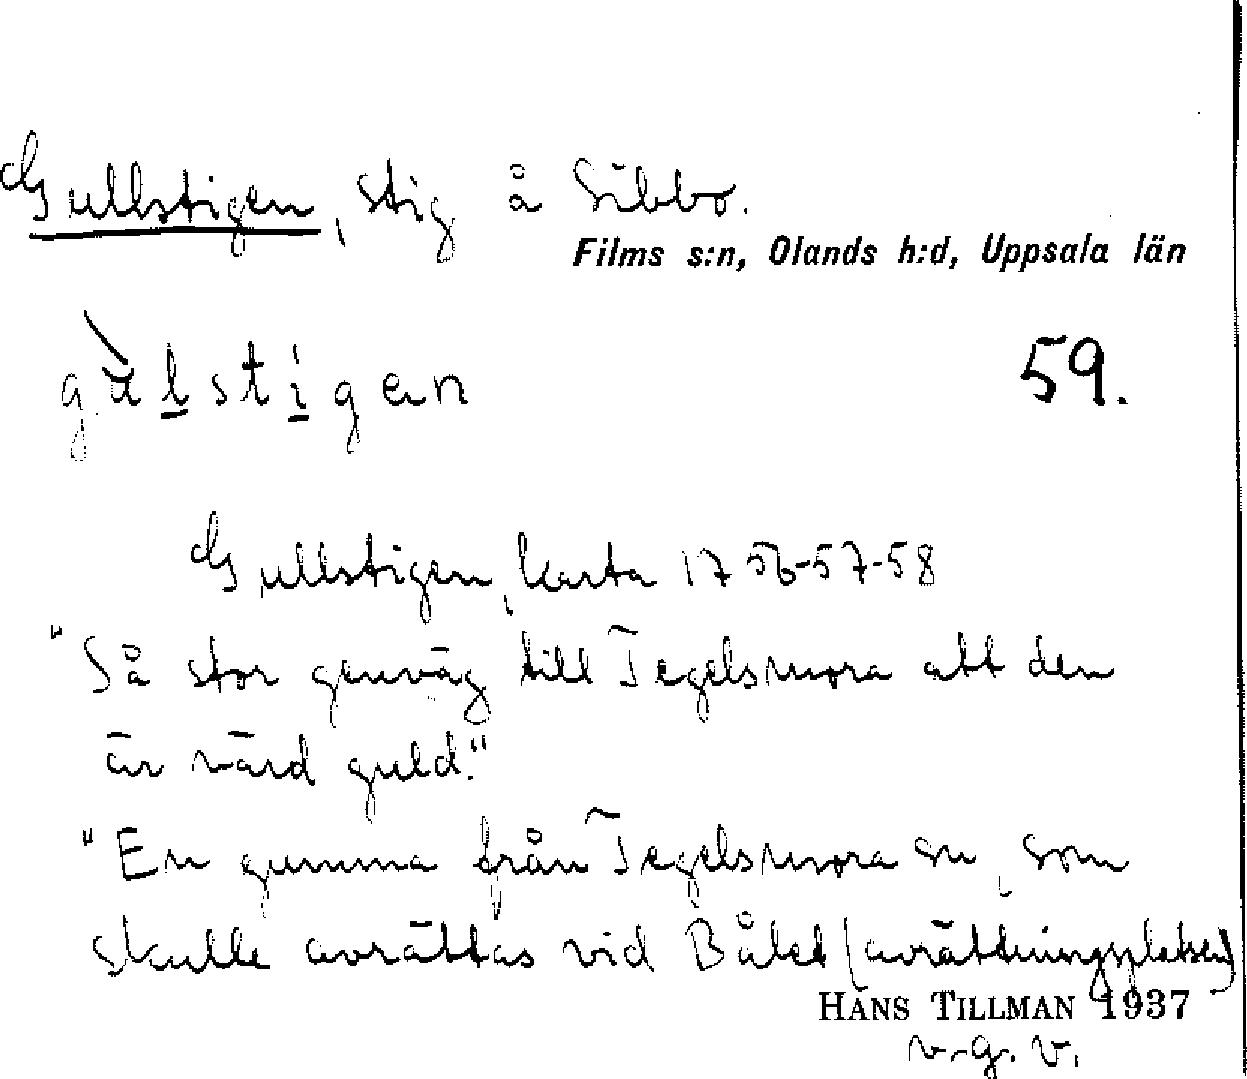 Gullstigen, stig å Sibbo.
Films s:n, Olands h:d, Uppsala län
gùlstigen
59.
Gullstigen, karta 1756-57-58
"Så stor genväg till Tegelsmora att den
är värd guld."
"En gumma från Tegelsmora sn, som
skulle avrättas vid Bålet (avrättningsplatsen)
HANS TILLMAN 1937
v.g.v.